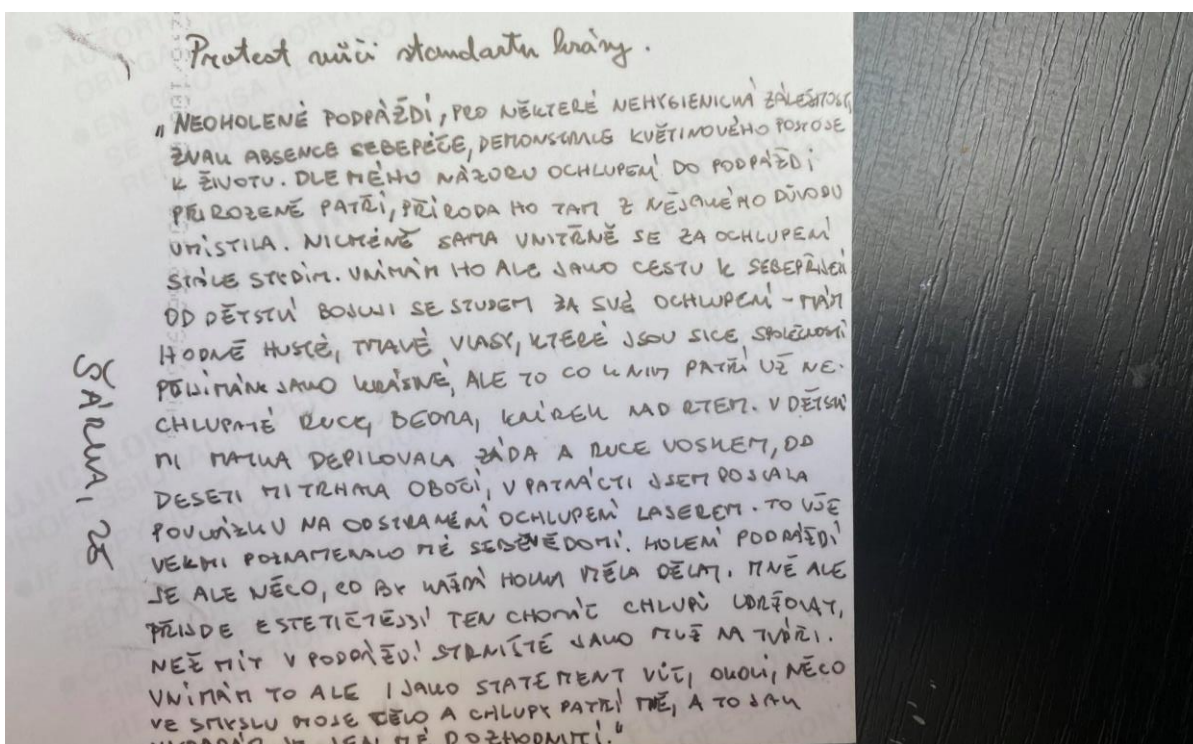 Protest vůči standartu krásy.
„NEOHOLENÉ PODPAŽDÍ, PRO NĚKTERÉ NEHYGIENICKÁ ZÁLEŽITOST,
ZNAK ABSENCE SEBEPÉČE, DEMONSTRACE KVĚTINOVÉHO POSTOJE
K ŽIVOTU. DLE MÉHO NÁZORU OCHLUPENÍ DO PODPAŽDÍ
PŘIROZENĚ PATŘÍ, PŘÍRODA HO TAM Z NĚJAKÉHO DŮVODU
UMÍSTILA. NICMÉNĚ SAMA VNITŘNĚ SE ZA OCHLUPENÍ
STÁLE STYDÍM. VNÍMÁM HO ALE JAKO CESTU K SEBEPŘIJETÍ
OD DĚTSTVÍ BOJUJI SE STUDEM ZA SVÉ OCHLUPENÍ - MÁM
HODNĚ HUSTÉ, TMAVÉ VLASY, KTERÉ JSOU SICE SPOLEČNOSTÍ
JAKO KRÁSNÉ, ALE TO CO K NIM PATŘÍ UŽ NE.
CHLUPATÉ RUCE, BEDRA, KNÍREK NAD RTEM. V DĚTSTVÍ
MI MATKA DEPILOVALA ZÁDA A RUCE VOSKEM, OD
DESETI MI TRHALA OBOČÍ, V PATNÁCTI JSEM DOSTALA
POUKÁZKU NA ODSTRANĚNÍ OCHLUPENÍ LASEREM. TO VŠE
VELMI POZNAMENALO MÉ SEBEVĚDOMÍ. HOLENÍ PODPAŽDÍ
JE ALE NĚCO, CO BY KAŽDÁ HOLKA MĚLA DĚLAT. MNĚ ALE
PŘIJDE ESTETIČTĚJŠÍ TEN CHOMÁČ CHLUPŮ UDRŽOVAT,
NEŽ MÍT V PODPAŽDÍ STRNIŠTĚ JAKO MUŽ NA TVÁŘI.
VNÍMÁM TO ALE I JAKO STATEMENT VŮČI OKOLÍ, NĚCO
VE SMYSLU MOJE TĚLO A CHLUPY PATŘÍ MĚ, A TO JAK
JE JEN MÉ ROZHODNUTÍ."
ŠÁRKA, 25